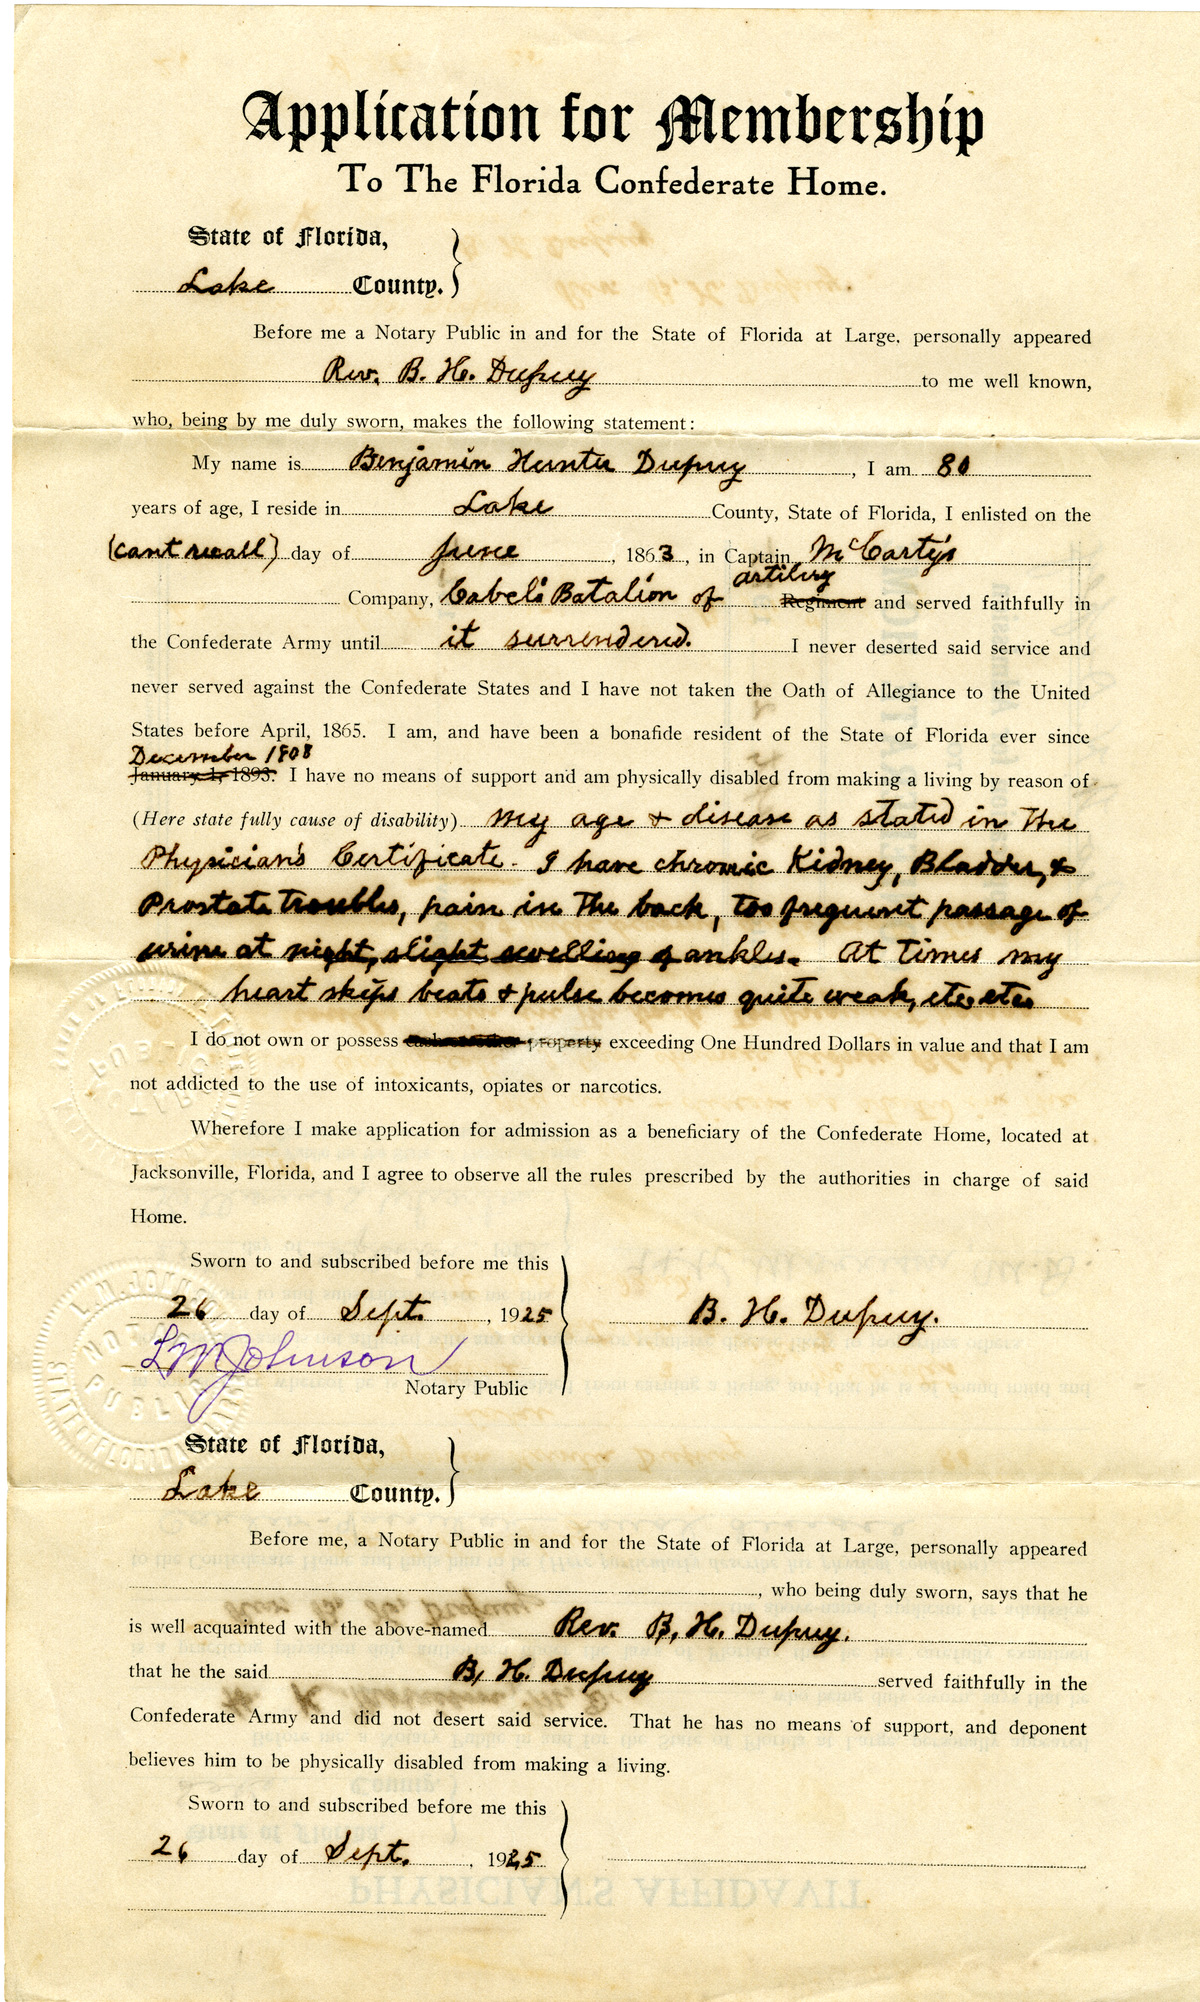 Application for Membership
To The Florida Confederate Home.
State of Florida,
Lake County.
Before me a Notary Public in and for the State of Florida at Large, personally appeared
Rev. B. H. Dupuy to me well known,
who, being by me duly sworn, makes the following statement:
My name is Benjamin Hunter Dupuy, I am 80
years of age, I reside in Lake County, State of Florida, I enlisted on the
(cant recall) day of June, 1863, in Captain McCarty's
artilery
Company, Cabel's Batalion of Regiment and served faithfully in
the Confederate Army until it surrendered. I never deserted said service and
never served against the Confederate States and I have not taken the Oath of Allegiance to the United
States before April, 1865. I am, and have been a bonafide resident of the State of Florida ever since
December 1908
January 1, 1893. I have no means of support and am physically disabled from making a living by reason of
(Here state fully cause of disability) My age & disease as stated in The
Physician's Certificate. I have chronic Kidney, Bladder, &
Prostate troubles, pain in The back, too frequent passage of
urine at night, slight swelling of ankles. At times my
heart skips beats & pulse becomes quite weak, etc etc
I do not own or possess property exceeding One Hundred Dollars in value and that I am
not addicted to the use of intoxicants, opiates or narcotics.
Wherefore I make application for admission as a beneficiary of the Confederate Home, located at
Jacksonville, Florida, and I agree to observe all the rules prescribed by the authorities in charge of said
Home.
Sworn to and subscribed before me this
26 day of Sept. , 1925
B. H. Dupuy.
L M Johnson
Notary Public
L. M. JOHNSON
NOTARY PUBLIC
STATE OF FLORIDA
State of Florida,
Lake County.
Before me, a Notary Public in and for the State of Florida at Large, personally appeared
, who being duly sworn, says that he
is well acquainted with the above-named Rev. B, H. Dupuy.
that he the said B, H. Dupuy served faithfully in the
Confederate Army and did not desert said service. That he has no means of support, and deponent
believes him to be physically disabled from making a living.
Sworn to and subscribed before me this
26 day of Sept. , 1925
PHYSICIAN'S AFFIDAVIT